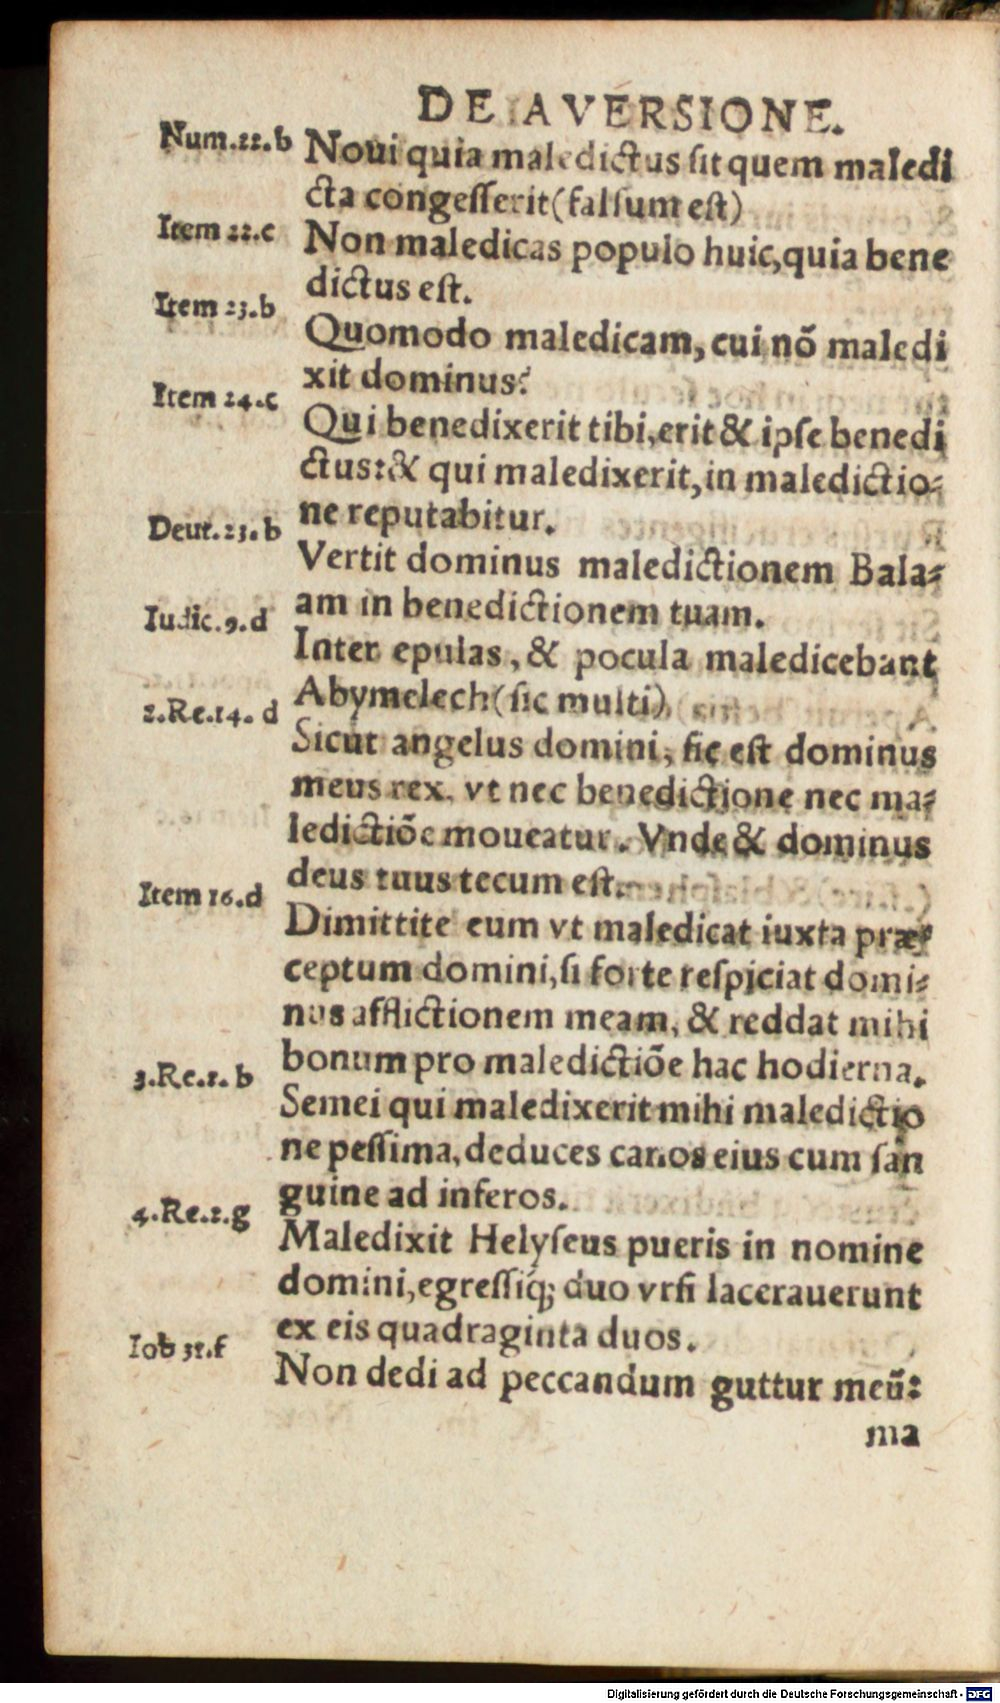 DE AVERSIONE.
Num.22.b Noui quia maledictus sit quem maledi
cta congesserit(falsum est)
Item 22.c Non maledicas populo huic,quia bene
dictus est.
Item 23.b Quomodo maledicam, cui nō maledi
xit dominus?
Item 24.c Qui benedixerit tibi,erit & ipse benedi
ctus:& qui maledixerit,in maledictio-
ne reputabitur.
Deut.23.b Vertit dominus maledictionem Bala-
am in benedictionem tuam.
Iudic.9.d Inter epulas, & pocula maledicebant
Abymelech(sic multi)
2.Re.14.d Sicut angelus domini, sic est dominus
meus rex, vt nec benedictione nec ma-
ledictiōe moueatur. Vnde & dominus
deus tuus tecum est.
Item 16.d Dimittite eum vt maledicat iuxta præ-
ceptum domini,si forte respiciat domi-
nus afflictionem meam, & reddat mihi
bonum pro maledictiōe hac hodierna.
3.Re.2.b Semei qui maledixerit mihi maledictio
ne pessima,deduces canos eius cum san
guine ad inferos.
4.Re.2.g Maledixit Helyseus pueris in nomine
domini,egressiq; duo vrsi lacerauerunt
ex eis quadraginta duos.
Iob 31.f Non dedi ad peccandum guttur meū:
ma
Digitalisierung gefördert durch die Deutsche Forschungsgemeinschaft - DFG